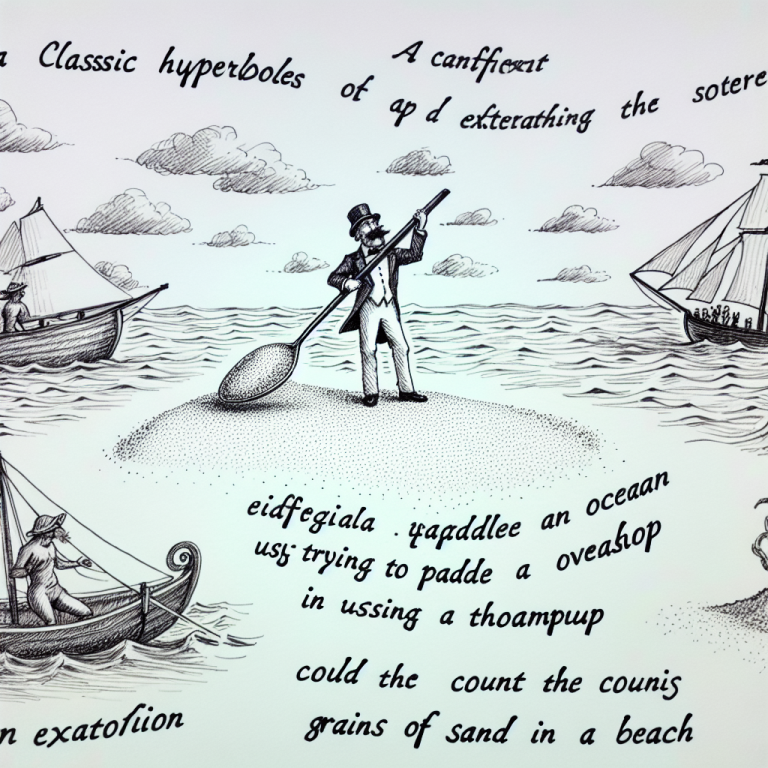 a Classsic hyperboles of
A canffext
ap d exterathing the sotere
eidfegiala . yapddlee an oceaan
usşi trying to padde a oveahop
in ussing a thoampwp
could the count the counis
grains of sand in a beach
n exatofiion